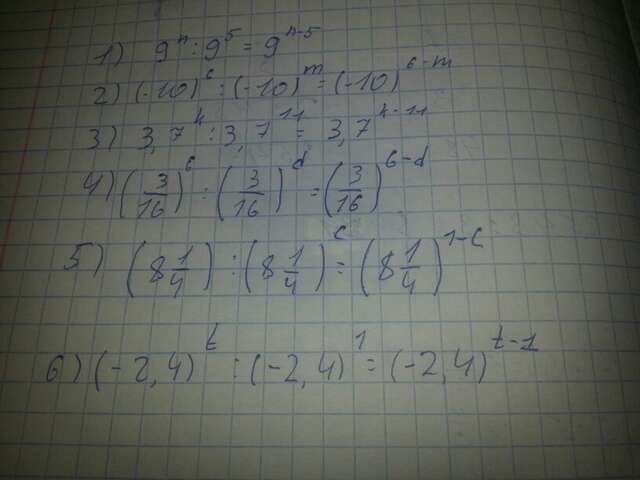 1) 9^n : 9^5 = 9^(n-5)
2) (-10)^6 : (-10)^m = (-10)^(6-m)
3) 3,7^k : 3,7^11 = 3,7^(k-11)
4) (3/16)^6 : (3/16)^d = (3/16)^(6-d)
5) (8 1/4) : (8 1/4)^c = (8 1/4)^(1-c)
6) (-2,4)^t : (-2,4)^1 = (-2,4)^(t-1)